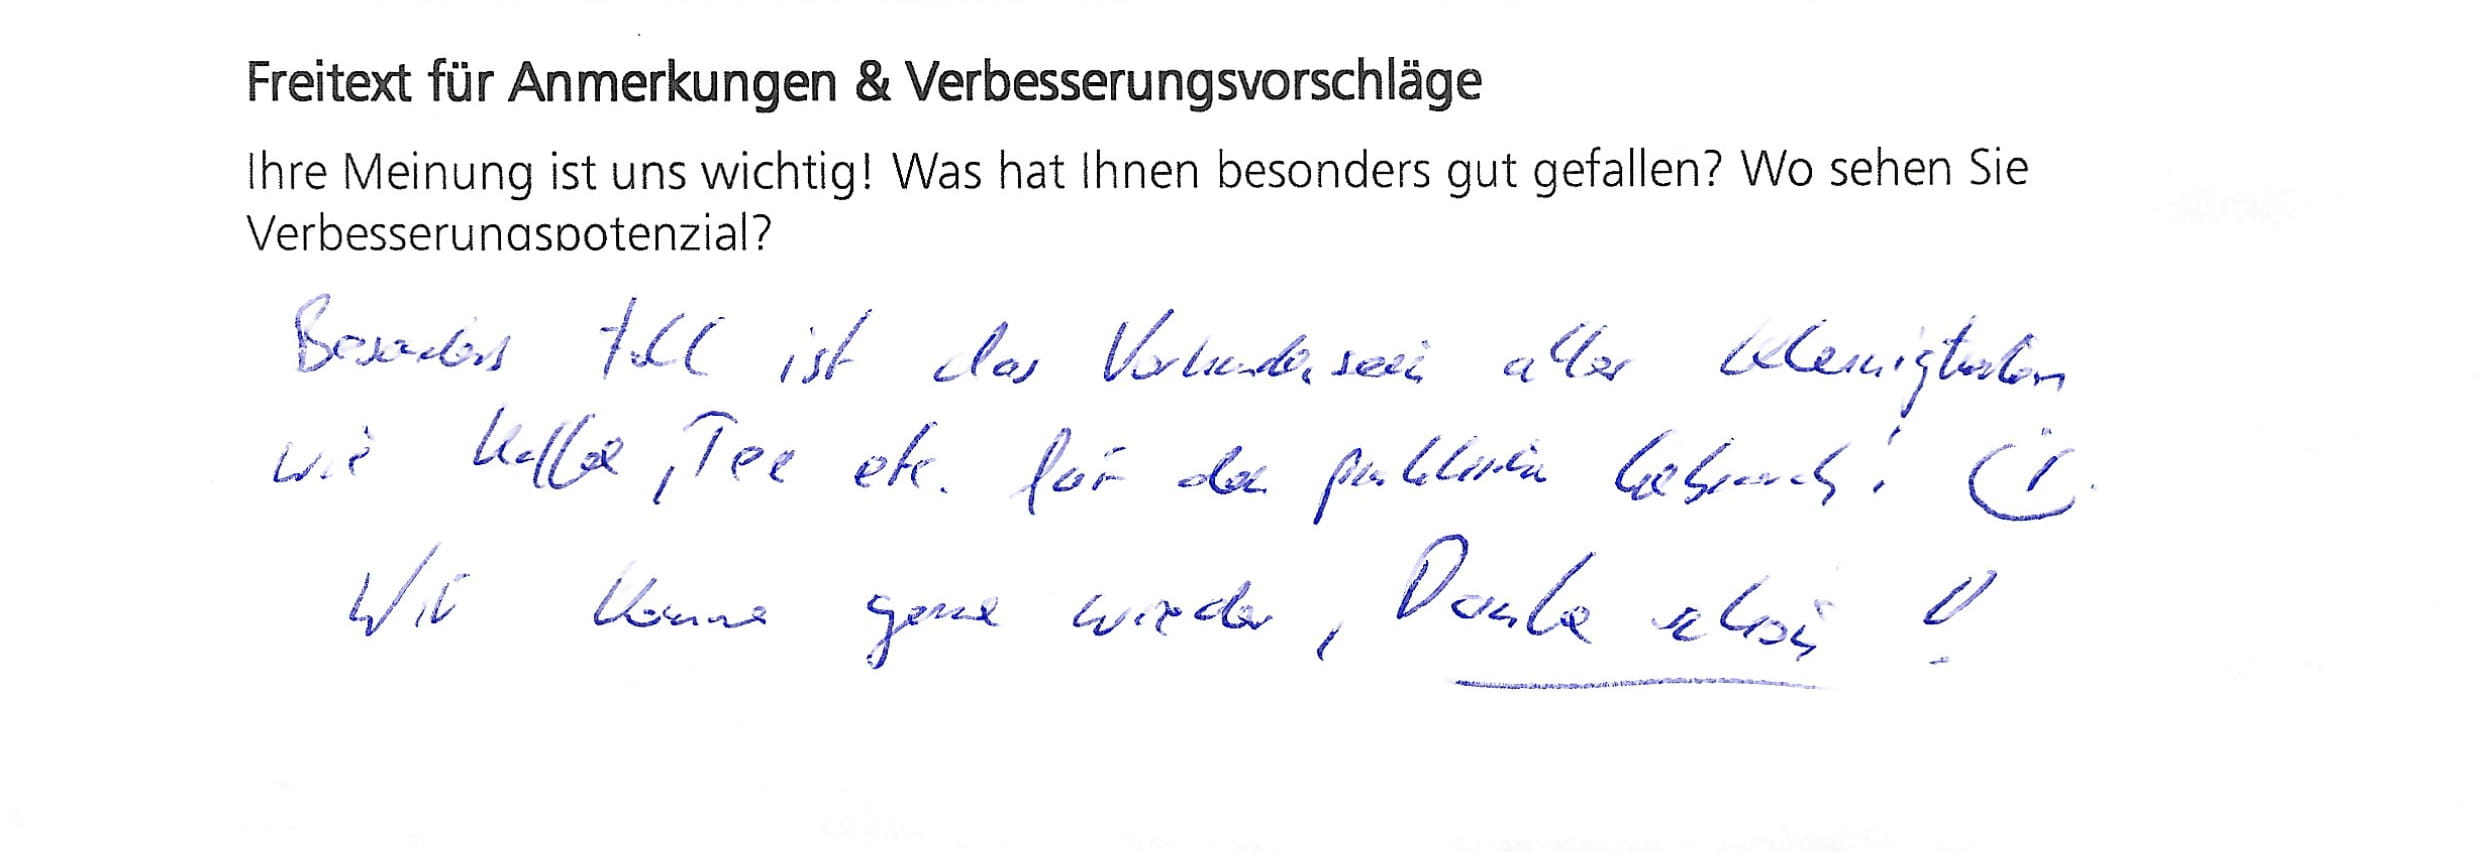 Freitext für Anmerkungen & Verbesserungsvorschläge
Ihre Meinung ist uns wichtig! Was hat Ihnen besonders gut gefallen? Wo sehen Sie
Verbesserungspotenzial?
Besonders toll ist das Vorhandensein aller Kleinigkeiten
wie Kaffee, Tee etc. für den Gebrauch! ☺
Wir kommen gerne wieder, Danke schön!!